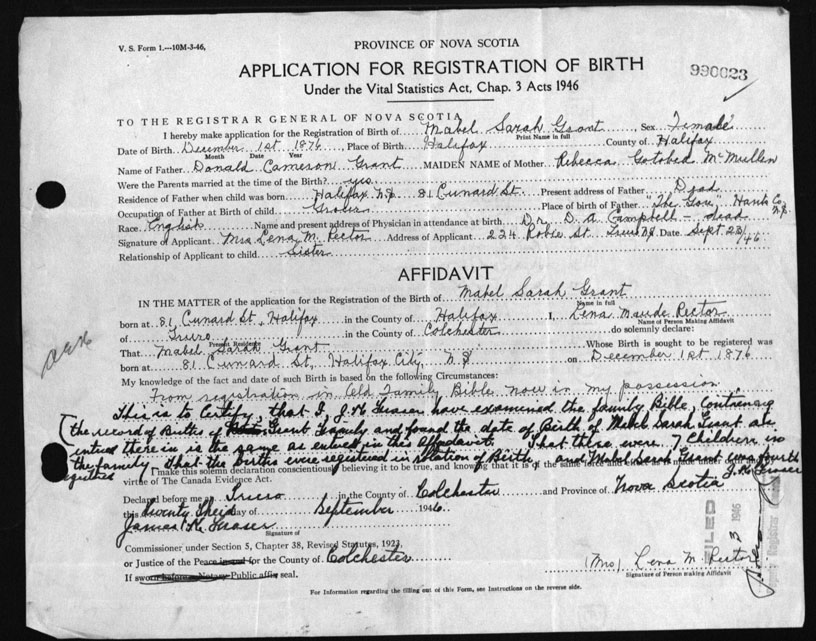 V. S. Form 1.---10M-3-46,
PROVINCE OF NOVA SCOTIA
APPLICATION FOR REGISTRATION OF BIRTH
990023
Under the Vital Statistics Act, Chap. 3 Acts 1946
TO THE REGISTRAR GENERAL OF NOVA SCOTIA
I hereby make application for the Registration of Birth of Mabel Sarah Grant Sex Female
Print Name in full
Date of Birth December 1st 1876, Place of Birth Halifax County of Halifax
Month Date Year
Name of Father Donald Cameron Grant MAIDEN NAME of Mother Rebecca Gotobed McMullen
Were the Parents married at the time of the Birth? yes
Residence of Father when child was born Halifax N.S. 81 Cunard St. Present address of Father Dead
Occupation of Father at Birth of child Grocer Place of birth of Father "The Gore", Hants Co. N.S.
Race English Name and present address of Physician in attendance at birth Dr. D. A. Campbell - dead
Signature of Applicant Mrs Lena M. Rector Address of Applicant 224 Robie St. Truro N.S. Date Sept 23/46
Relationship of Applicant to child Sister
AFFIDAVIT
IN THE MATTER of the application for the Registration of the Birth of Mabel Sarah Grant
Name in full
born at 81 Cunard St., Halifax in the County of Halifax I, Lena Maude Rector
Name of Person Making Affidavit
of Truro in the County of Colchester do solemnly declare:
Present Residence
That Mabel Sarah Grant Whose Birth is sought to be registered was
born at 81 Cunard St, Halifax City, N.S. on December 1st 1876
My knowledge of the fact and date of such Birth is based on the following Circumstances:
From registration in Old Family Bible now in my possession
This is to Certify, that I, J. K. Fraser have examined the family Bible, Containing
the record of Births of Grant Family and found the date of Birth of Mabel Sarah Grant as
entered there in is the same as entered in this affadavit. That there were 7 Children in
the family that the births were registered in rotation of Birth and Mabel Sarah Grant was fourth
registered J. K. Fraser
I make this solemn declaration conscientiously believing it to be true, and knowing that it is of the same force and effect as if made under oath by
virtue of The Canada Evidence Act.
Declared before me at Truro in the County of Colchester and Province of Nova Scotia
this Twenty Third day of September 1946
James K. Fraser
Signature of
Commissioner under Section 5, Chapter 38, Revised Statutes, 1923,
or Justice of the Peace in and for the County of Colchester
(Mrs) Lena M. Rector
Signature of Person making Affidavit
If sworn before Notary Public affix seal.
For Information regarding the filling out of this Form, see Instructions on the reverse side.
FILED
3 1946